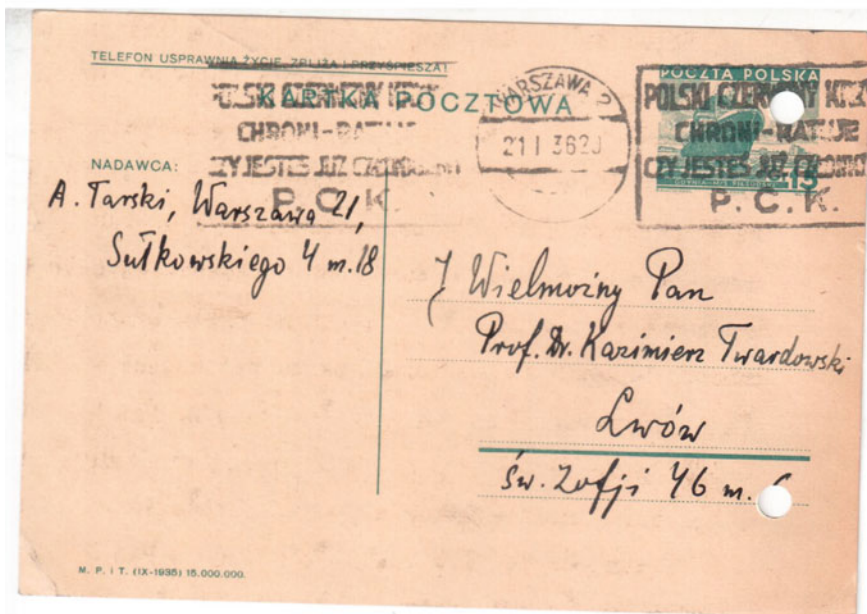 TELEFON USPRAWNIA ŻYCIE, ZBLIŻA I PRZYŚPIESZA!
KARTKA POCZTOWA
POCZTA POLSKA
POLSKI CZERWONY
CHRONI-RATUJE
CZY JESTEŚ JUŻ CZŁONKIEM
P. C. K.
WARSZAWA 2
21 I 36
POLSKI CZERWONY
CHRONI-RATUJE
CZY JESTEŚ JUŻ
P. C. K.
15
NADAWCA:
A. Tarski, Warszawa 21,
Sułkowskiego 4 m. 18
Wielmożny Pan
Prof. Dr. Kazimierz Twardowski
Lwów
św. Zofji 46 m.
M. P. i T. (IX-1935) 15.000.000.